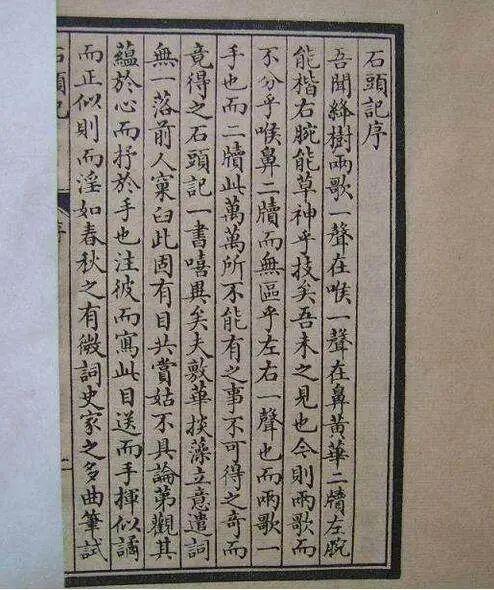 石頭記序
吾聞絳樹兩歌一聲在喉一聲在鼻黃華二牘左腕
能楷右腕能草神乎技矣吾未之見也今則兩歌而
不分乎喉鼻二牘而無區乎左右一聲也而兩歌一
手也而二牘此萬萬所不能有之事不可得之奇而
竟得之石頭記一書嘻異矣夫敷華掞藻立意遣詞
無一落前人窠臼此固有目共賞姑不具論第觀其
蘊於心而抒於手也注彼而寫此目送而手揮似譎
而正似則而淫如春秋之有微詞史家之多曲筆試
石頭記